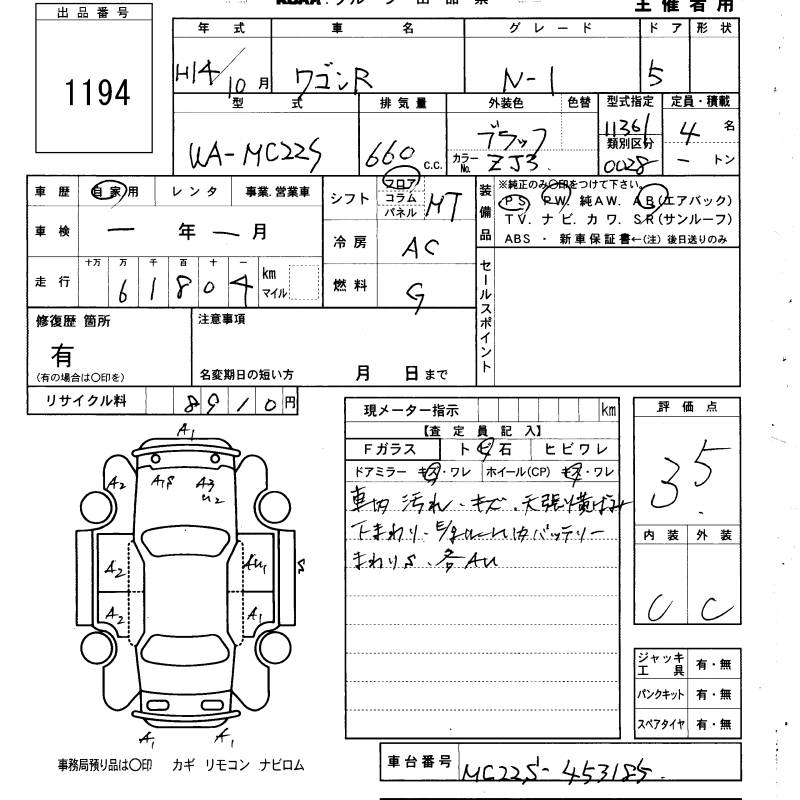 主催者用
出品番号
1194
年式 車名 グレード ドア 形状
H14/10月 ワゴンR N-1 5
型式 排気量 外装色 色替 型式指定 定員・積載
UA-MC22S 660 c.c. ブラック カラーNo. ZJ3 11361 類別区分 0028 4名 ートン
車歴 自家用 レンタ 事業.営業車
車検 ー年ー月
走行 十万 万 千 百 十 一 km マイル
6 1 8 0 4
シフト フロア コラム パネル MT
冷房 AC
燃料 G
装備品 ※純正のみ〇印をつけて下さい。
PS. PW. 純AW. AB(エアバック)
TV. ナビ. カワ. SR(サンルーフ)
ABS ・ 新車保証書←(注) 後日送りのみ
セールスポイント
修復歴 箇所
有
(有の場合は〇印を)
注意事項
名変期日の短い方 月 日まで
リサイクル料 8910円
現メーター指示 km
【査定員記入】
Fガラス トビ石 ヒビワレ
ドアミラー キズ・ワレ ホイール(CP) キズ・ワレ
車内 汚れ・キズ・天張
下まわり・
バッテリー
まわりS. 各AU
評価点
3.5
内装 外装
C C
A1
A2 A1S A3 U2
A2 AU1 S
A2 A1
A1 A1
ジャッキ工具 有・無
パンクキット 有・無
スペアタイヤ 有・無
事務局預り品は〇印 カギ リモコン ナビロム
車台番号 MC22S-453185